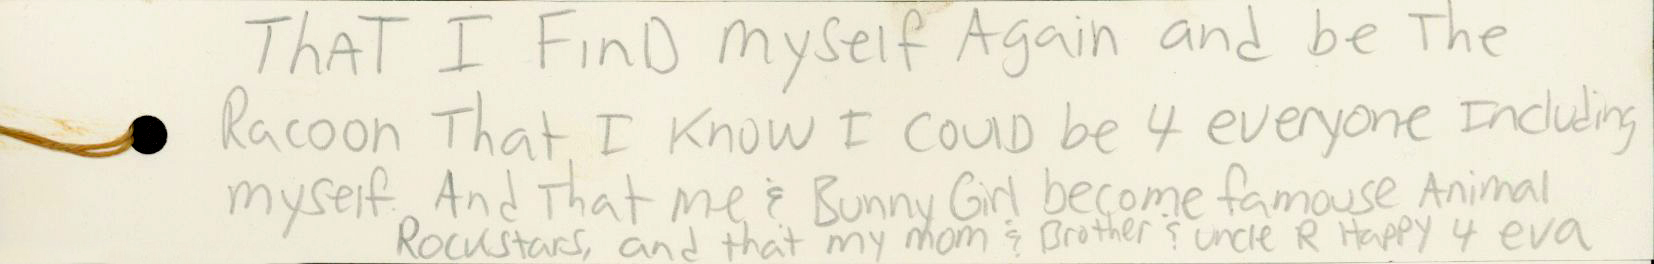 ThAT I FinD myself Again and be The
Racoon That I Know I COUlD be 4 everyone Including
myself. And That me & Bunny Girl become famouse Animal
Rockstars, and that my mom & Brother & uncle R Happy 4 eva